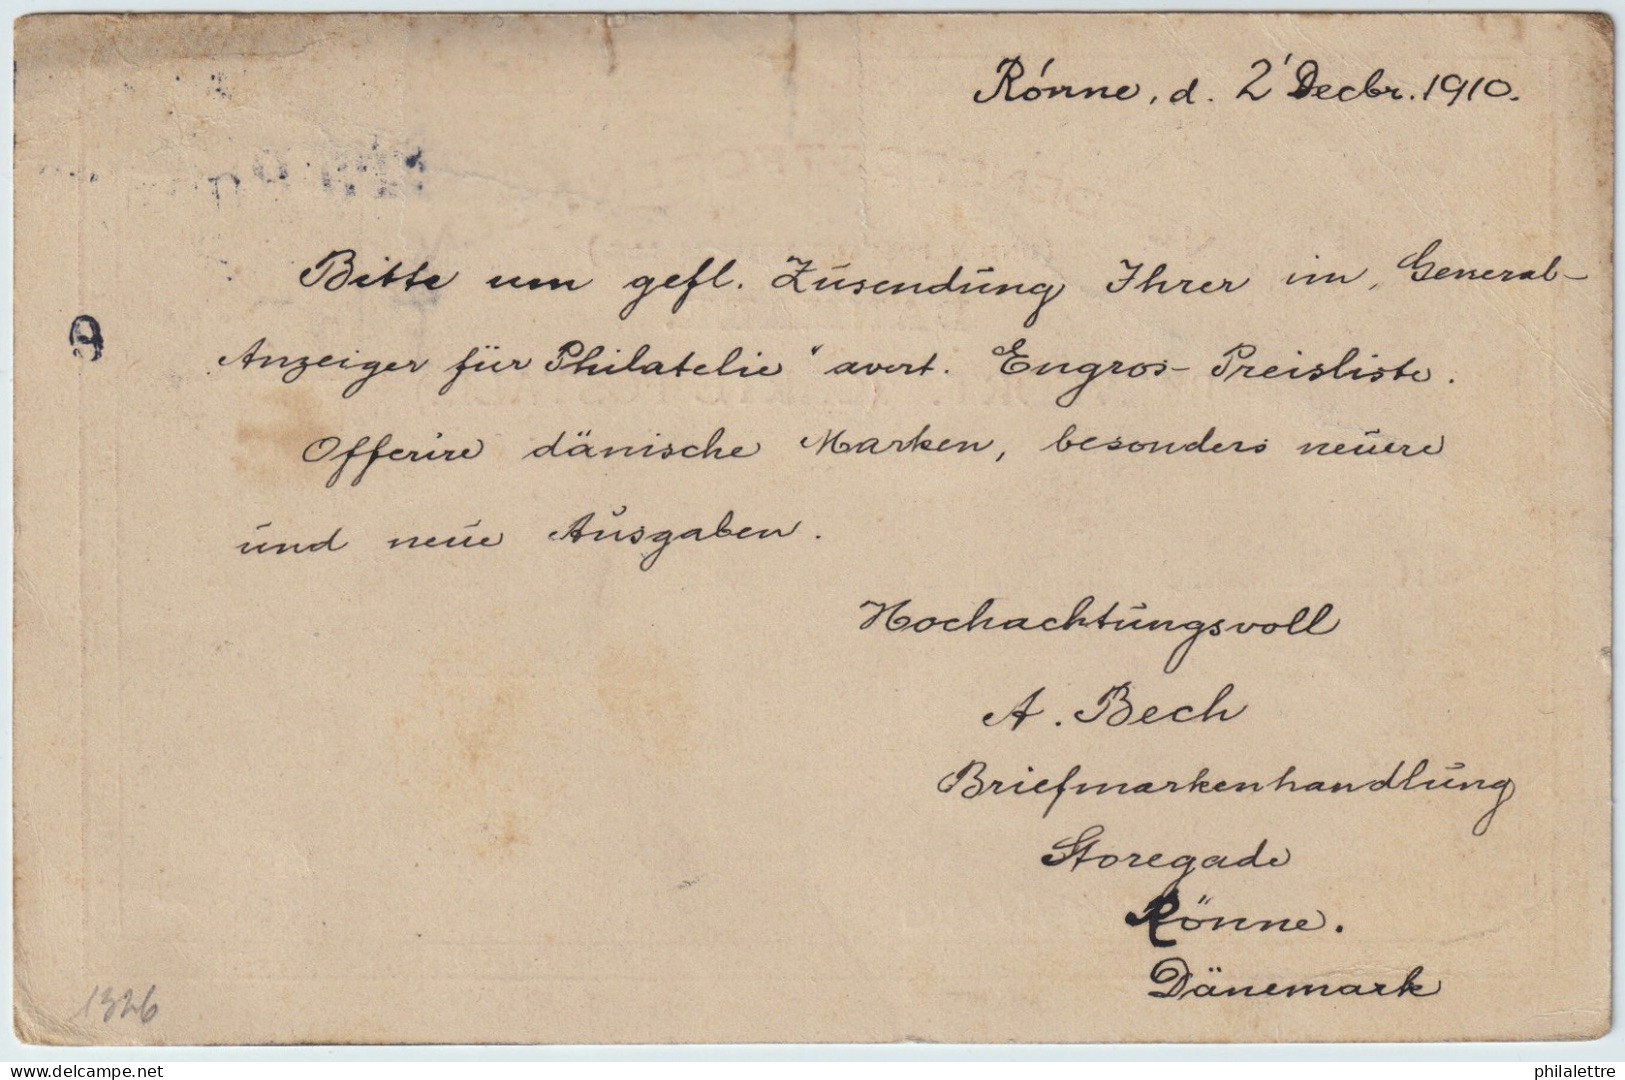 Rónne, d. 2' Decbr. 1910.
Bitte um gefl. Zusendung Ihrer im „General-
Anzeiger für Philatelie" avert. Engros-Preisliste.
Offerire dänische Marken, besonders neuere
und neue Ausgaben.
Hochachtungsvoll
A. Bech
Briefmarkenhandlung
Storegade
Rönne.
Dänemark
1326
www.delcampe.net
philalettre